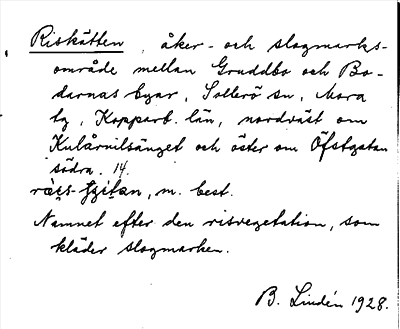 Riskätten, åker- och slogmarks-
område mellan Gruddbo och Bo-
darnas byar, Sollerö sn, Mora
tg, Kopparb. län, nordväst om
och öster om
södra. 14.
m. best.
Namnet efter den risvegetation, som
kläder slogmarken.
B. Lindén 1928.